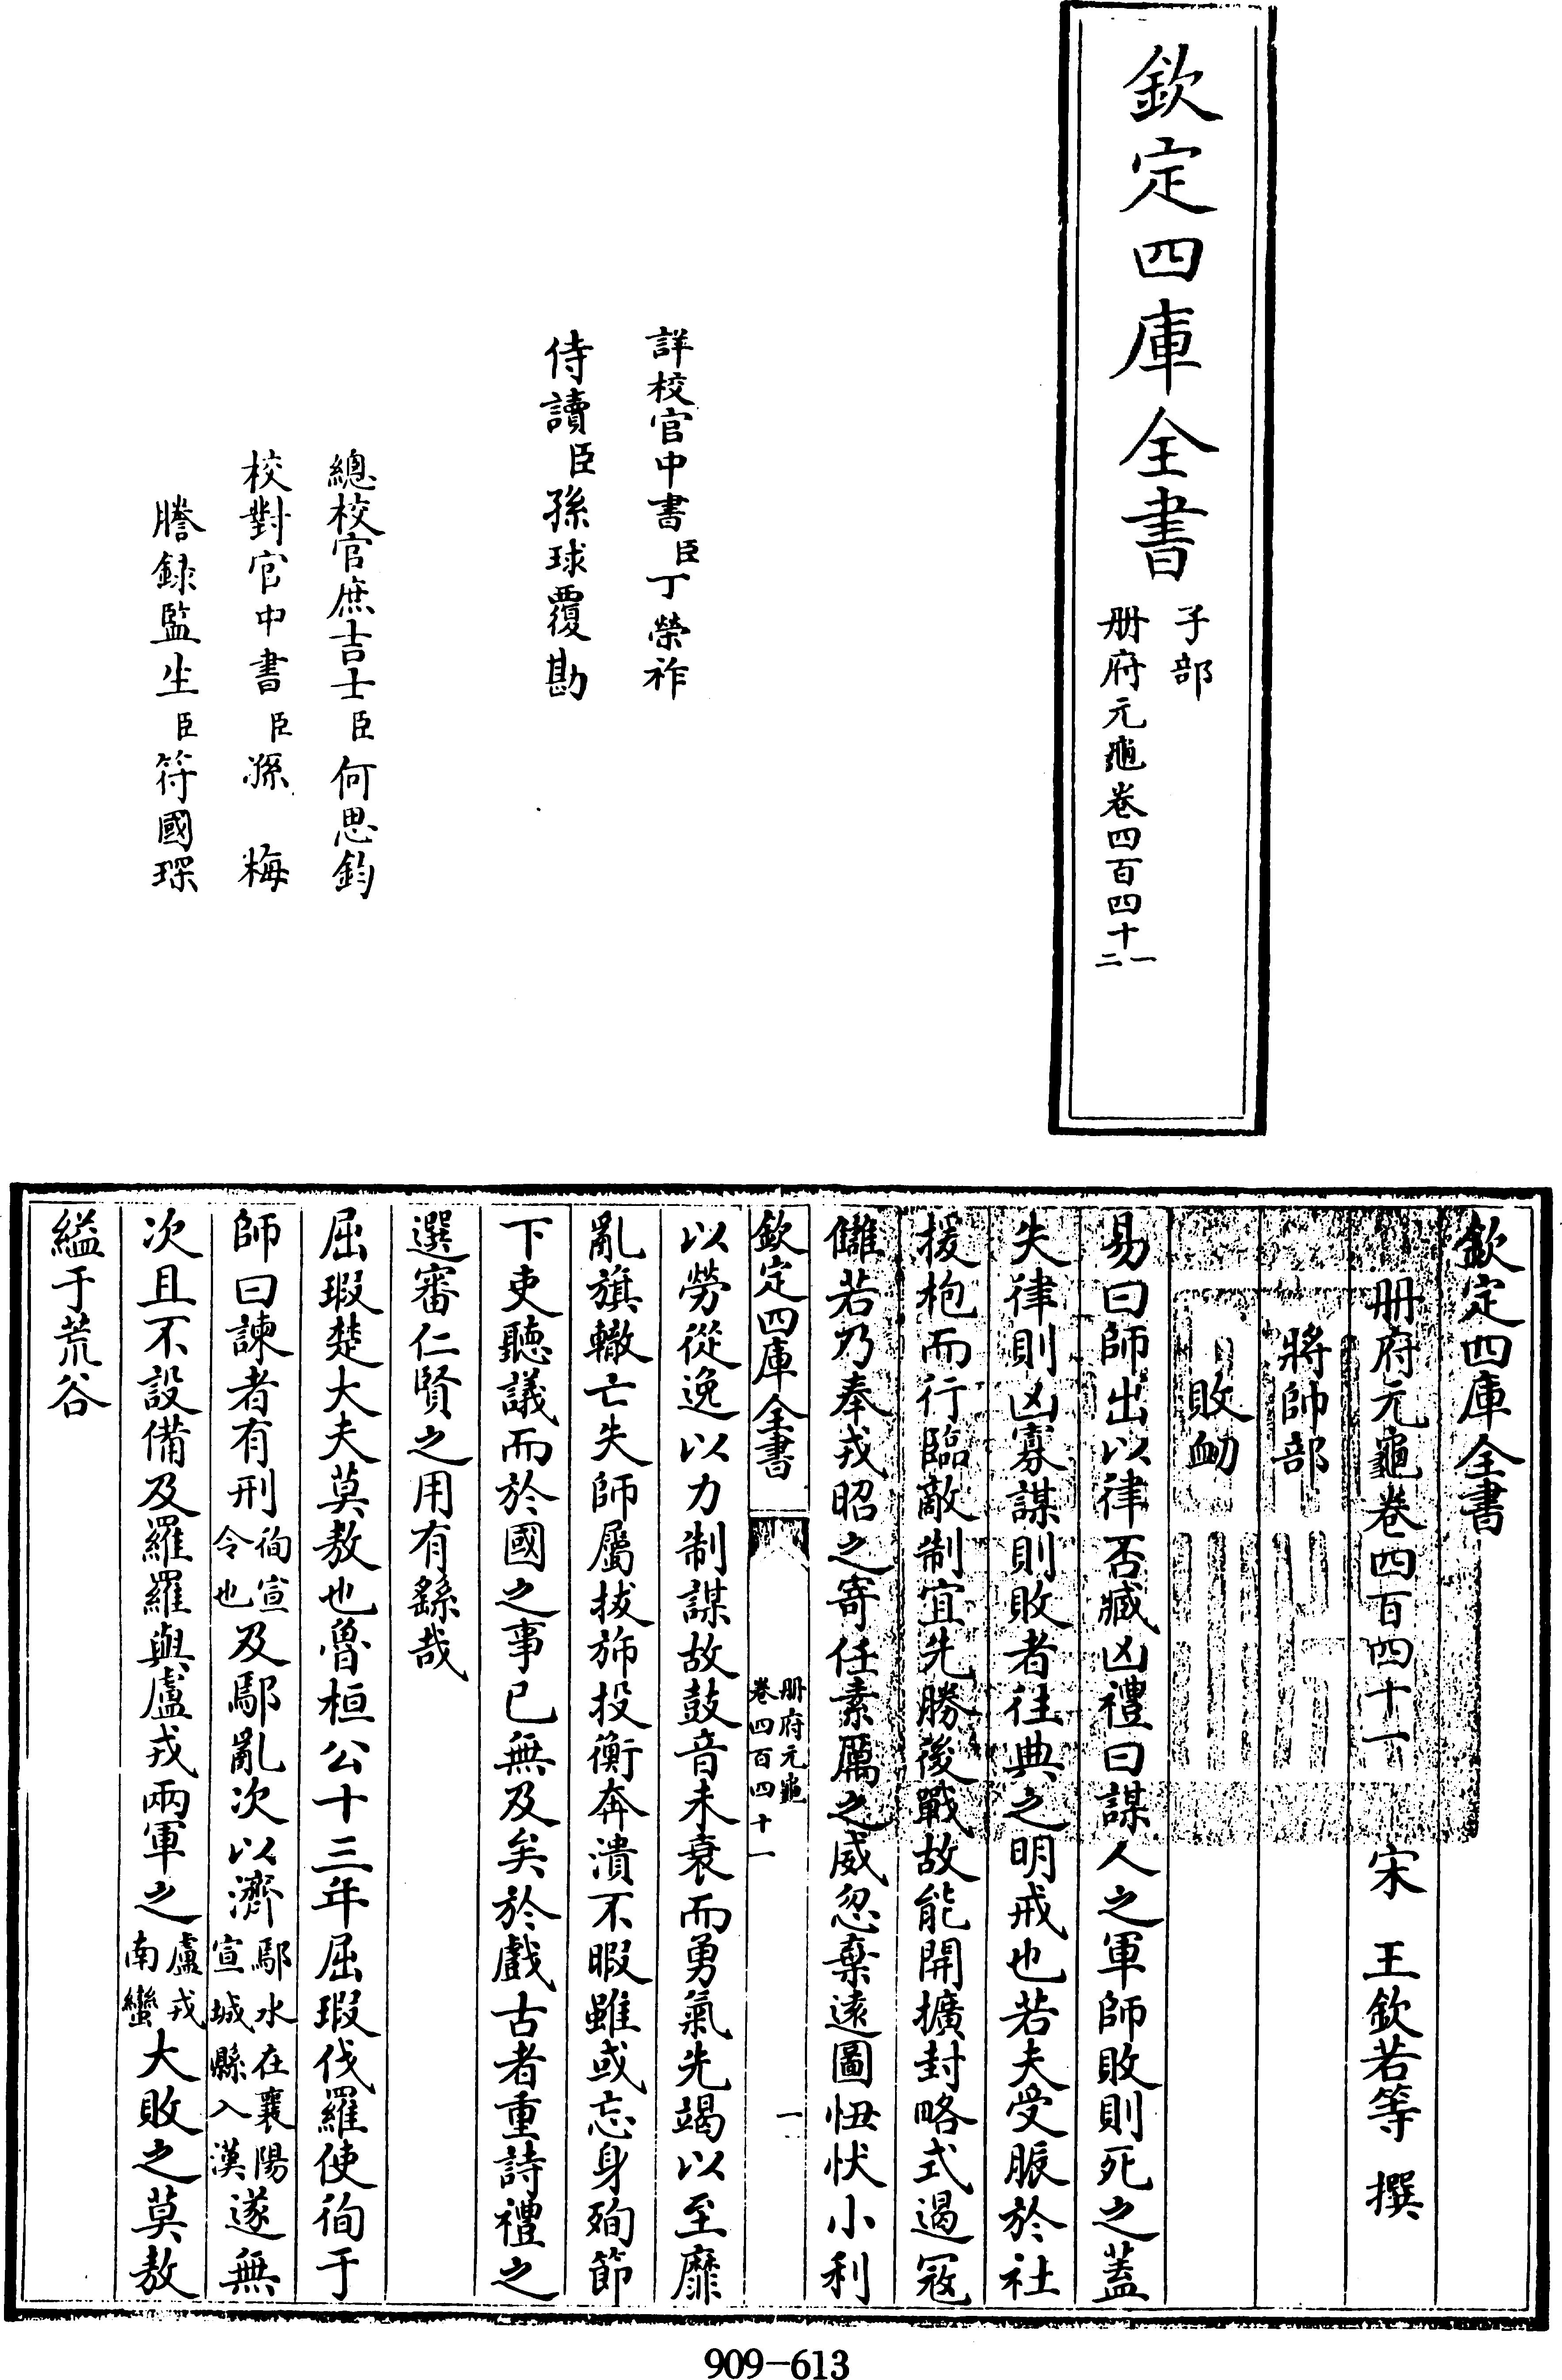 欽定四庫全書
子部
册府元龜卷四百四十一
二
詳校官中書臣丁榮祚
侍讀臣孫球覆勘
總校官庶吉士臣何思鈞
校對官中書臣孫梅
謄録監生臣符國琛
欽定四庫全書
册府元龜卷四百四十一 宋 王欽若等 撰
將帥部
敗衂
易曰師出以律否臧凶禮曰謀人之軍師敗則死之蓋
失律則凶寡謀則敗者往典之明戒也若夫受脤於社
援枹而行臨敵制宜先勝後戰故能開擴封略式遏冦
讎若乃奉戎昭之寄任素厲之威忽棄遠圖忸忕小利
欽定四庫全書
册府元龜
卷四百四十一
一
以勞從逸以力制謀故鼓音未衰而勇氣先竭以至靡
亂旗轍亡失師屬拔斾投衡奔潰不暇雖或忘身殉節
下吏聽議而於國之事已無及矣於戲古者重詩禮之
選審仁賢之用有繇哉
屈瑕楚大夫莫敖也魯桓公十三年屈瑕伐羅使徇于
師曰諫者有刑徇宣令也及鄢亂次以濟鄢水在襄陽宣城縣入漢遂無
次且不設備及羅羅與盧戎兩軍之盧戎南蠻大敗之莫敖
縊于荒谷
909-613